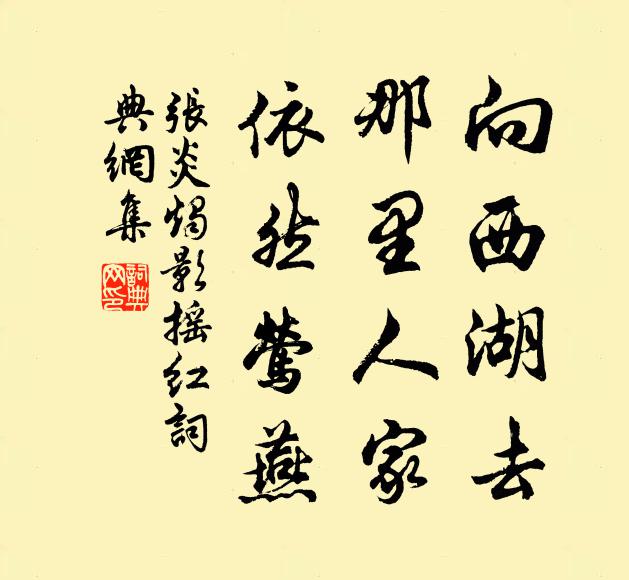 向西湖去
那里人家
依然莺燕
張炎燭影摇红詞
典網集
詞典網印